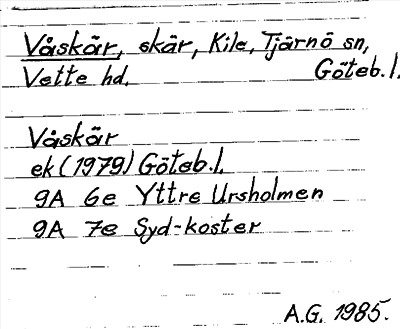 Våskär, skär, Kile, Tjärnö sn,
Vette hd. Göteb.l.
Våskär
ek (1979) Göteb.l.
9A 6e Yttre Ursholmen
9A 7e Syd-koster
A.G. 1985.